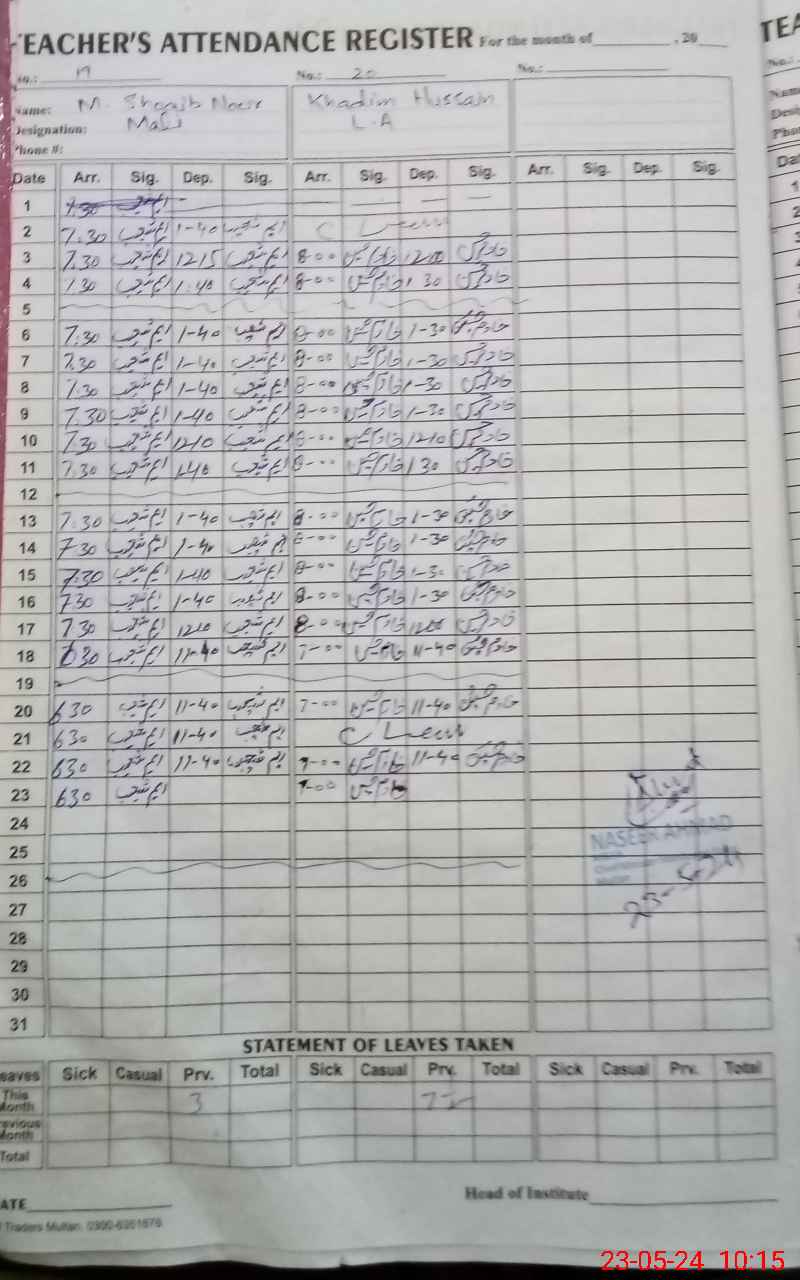 TEACHER'S ATTENDANCE REGISTER For the month of , 20
No.: 19 No.: 20 No.:
Name: M. Shoaib Khadim Hussain
Designation: Mali L.A
Phone #:
Date Arr. Sig. Dep. Sig. Arr. Sig. Dep. Sig. Arr. Sig. Dep. Sig.
1 7.30 ایم شعیب — — — — —
2 7.30 ایم شعیب 1-40 ایم شعیب C Leave
3 7.30 ایم شعیب 1215 ایم شعیب 8-00 خادم حسین 1200 خادم حسین
4 7.30 ایم شعیب 1.40 ایم شعیب 8-00 خادم حسین 1 30 خادم حسین
5
6 7.30 ایم شعیب 1-40 ایم شعیب 8-00 خادم حسین 1-30 خادم حسین
7 7.30 ایم شعیب 1-40 ایم شعیب 8-00 خادم حسین 1-30 خادم حسین
8 7.30 ایم شعیب 1-40 ایم شعیب 8-00 خادم حسین 1-30 خادم حسین
9 7.30 ایم شعیب 1-40 ایم شعیب 8-00 خادم حسین 1-30 خادم حسین
10 7.30 ایم شعیب 1210 ایم شعیب 8-00 خادم حسین 1210 خادم حسین
11 7.30 ایم شعیب 1.40 ایم شعیب 8-00 خادم حسین 1 30 خادم حسین
12
13 7.30 ایم شعیب 1-40 ایم شعیب 8-00 خادم حسین 1-30 خادم حسین
14 7 30 ایم شعیب 1-40 ایم شعیب 8-00 خادم حسین 1-30 خادم حسین
15 7.30 ایم شعیب 1-40 ایم شعیب 8-00 خادم حسین 1-30 خادم حسین
16 7 30 ایم شعیب 1-40 ایم شعیب 8-00 خادم حسین 1-30 خادم حسین
17 7 30 ایم شعیب 1210 ایم شعیب 8-00 خادم حسین 1200 خادم حسین
18 6 30 ایم شعیب 11-40 ایم شعیب 7-00 خادم حسین 11-40 خادم حسین
19
20 6 30 ایم شعیب 11-40 ایم شعیب 7-00 خادم حسین 11-40 خادم حسین
21 6 30 ایم شعیب 11-40 ایم شعیب C Leave
22 6 30 ایم شعیب 11-40 ایم شعیب 7-00 خادم حسین 11-40 خادم حسین
23 6 30 ایم شعیب 7-00 خادم حسین
24
NASEER AHMAD
25
26
23-5-24
27
28
29
30
31
STATEMENT OF LEAVES TAKEN
eaves Sick Casual Prv. Total Sick Casual Prv. Total Sick Casual Prv. Total
This Month 3
evious Month
Total
ATE Head of Institute
Traders Multan.
23-05-24 10:15